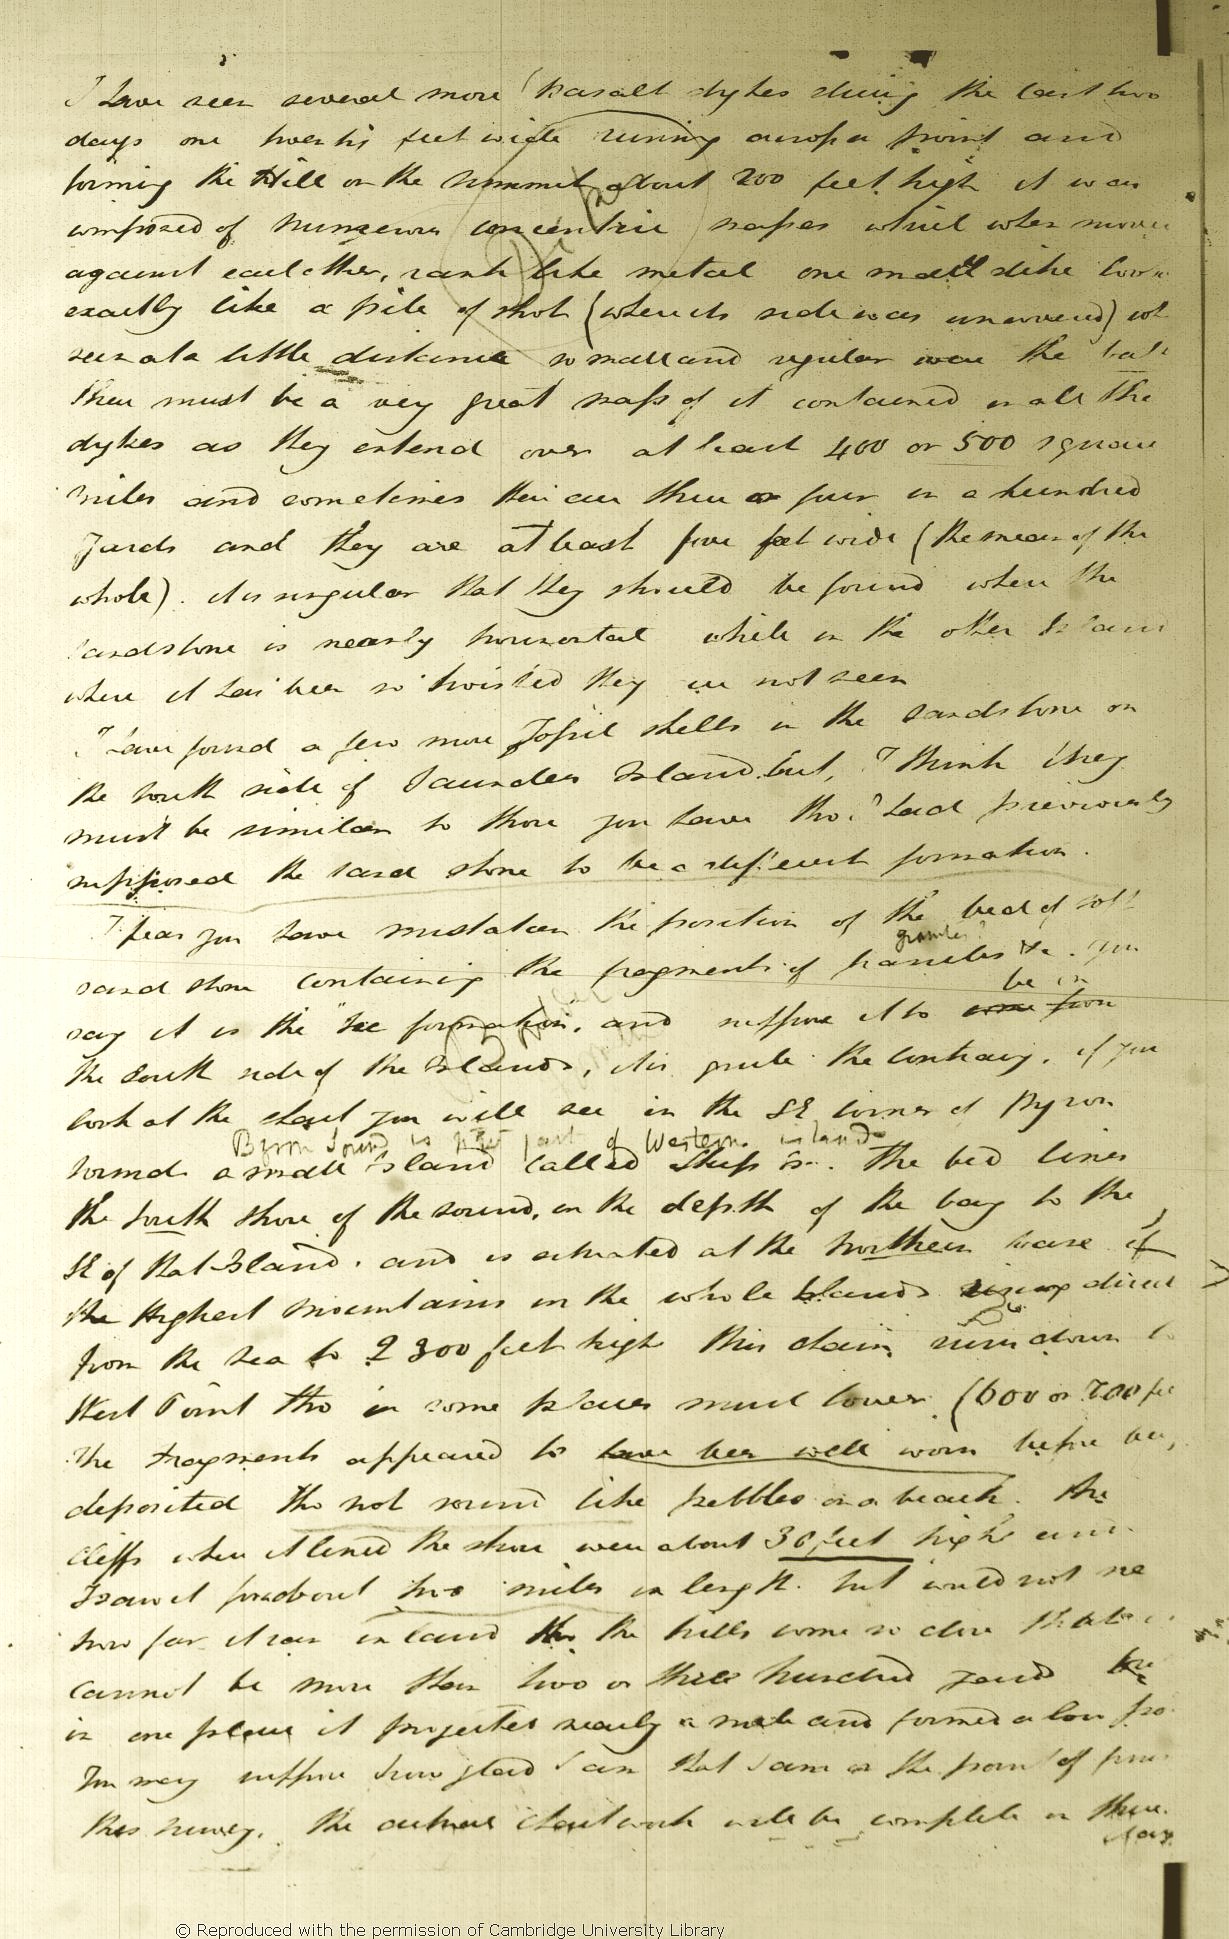 I have seen several more basalt dykes during the last two
days one twenty feet wide running across a point and
forming the Hill on the summit about 200 feet high it was
composed of numerous concentric masses which when moved
against each other, rank like metal one small dike looks
exactly like a pile of shot (where its side was uncovered) wh
seen at a little distance so small and regular were the balls
There must be a very great mass of it contained in all the
dykes as they extend over at least 400 or 500 square
miles and sometimes there are three or four in a hundred
yards and they are at least five feet wide (the mean of the
whole). it is singular that they should be found where the
sandstone is nearly horizontal while in the other Island
where it has been so twisted they are not seen
I have found a few more fossil shells in the sandstone on
the south side of Saunders Island but, I think they
must be similar to those you have tho' I had previously
supposed the sand stone to be a different formation.
I fear you have mistaken the position of the bed of soft
granite?
sand stone containing the fragments of &c. you
be in
say it is the formation, and suppose it to come from
the South side of the Islands, it is quite the contrary. if you
look at the chart you will see in the SE corner of Byron
Byron Sound is NW part of Western island
sound a small Island called Ship Is. The bed lines
the south shore of the sound, in the depth of the bay to the
SE of that Island. and is situated at the northern base of
the highest mountains in the whole Islands rising direct
from the sea to 2300 feet high this chain runs down to
West Point tho in some places much lower (600 or 700 fee
The fragments appeared to have been well worn before being
deposited tho not round like pebbles on a beach. the
cliffs where it lined the shore were about 30 feet high and
I saw it for about two miles in length. but could not see
how far it ran inland the hills come so close that it
cannot be more than two or three hundred yards
in one place it projected nearly a mile and formed a low
You may suppose how glad I am that I am on the point of
this survey. the actual chart work will be complete in three
days